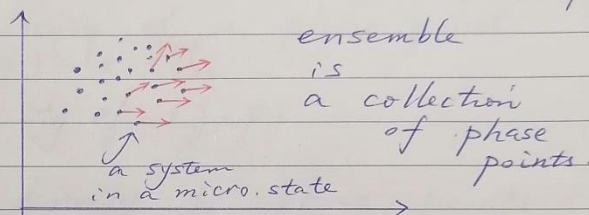 ensemble
is
a collection
of phase
points
a system
in a micro.state